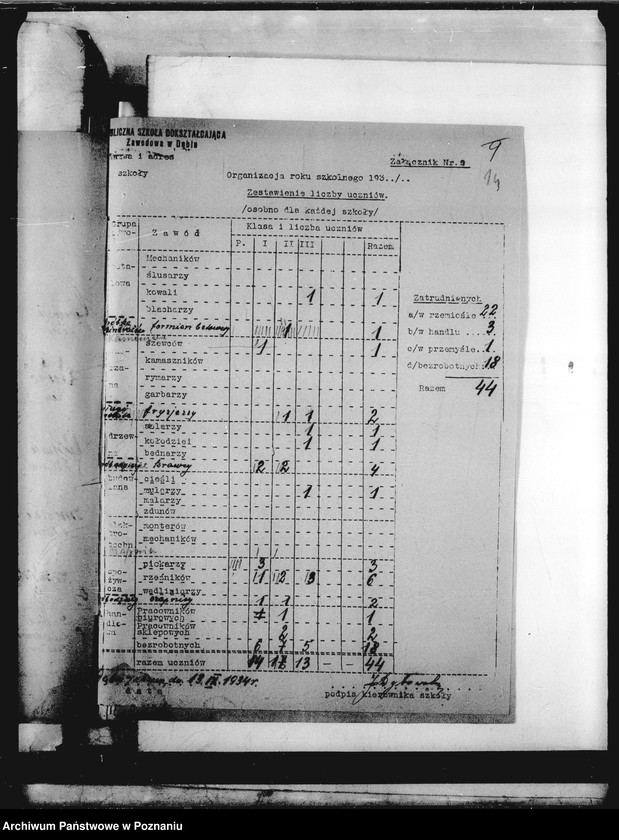 PUBLICZNA SZKOŁA DOKSZTAŁCAJĄCA
Zawodowa w Dębie
nazwa i adres
szkoły
Załącznik Nr. 9
9
Organizacja roku szkolnego 193../..
Zestawienie liczby uczniów.
/osobno dla każdej szkoły/
Zawód
Klasa i liczba uczniów
P. I II III Razem
Mechaników
ślusarzy
kowali 1 1
blacharzy
1 1
szewców 1 1
kamaszników
rymarzy
garbarzy
fryzjerzy 1 1 2
stolarzy 1 1
kołodziei 1 1
bednarzy
krawcy 2 2 4
cieśli
mularzy 1 1
malarzy
zdunów
monterów
mechaników
piekarzy 3 3
rzeźników 1 2 3 6
wędliniarzy
1 1 2
Pracowników biurowych 1 1
Pracowników sklepowych 2 2
bezrobotnych 6 7 5 18
razem uczniów 14 17 13 — — 44
Zatrudnionych
a/w rzemiośle 22
b/w handlu ... 3
c/w przemyśle.. 1
d/bezrobotnych 18
Razem 44
1934 r.
data
podpis kierownika szkoły
Archiwum Państwowe w Poznaniu